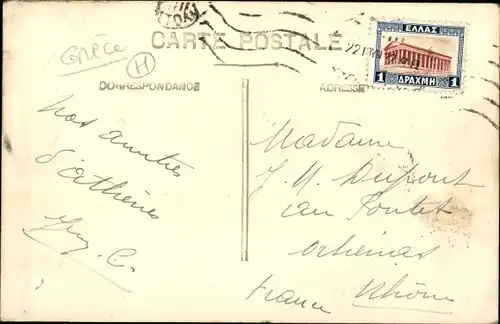 Grèce
H
CARTE POSTALE
ΕΛΛΑΣ
1 ΔΡΑΧΜΗ 1
CORRESPONDANCE
ADRESSE
Nos amitiés
d'athènes
Madame
J. M. Dupont
au Pontet
France Rhône